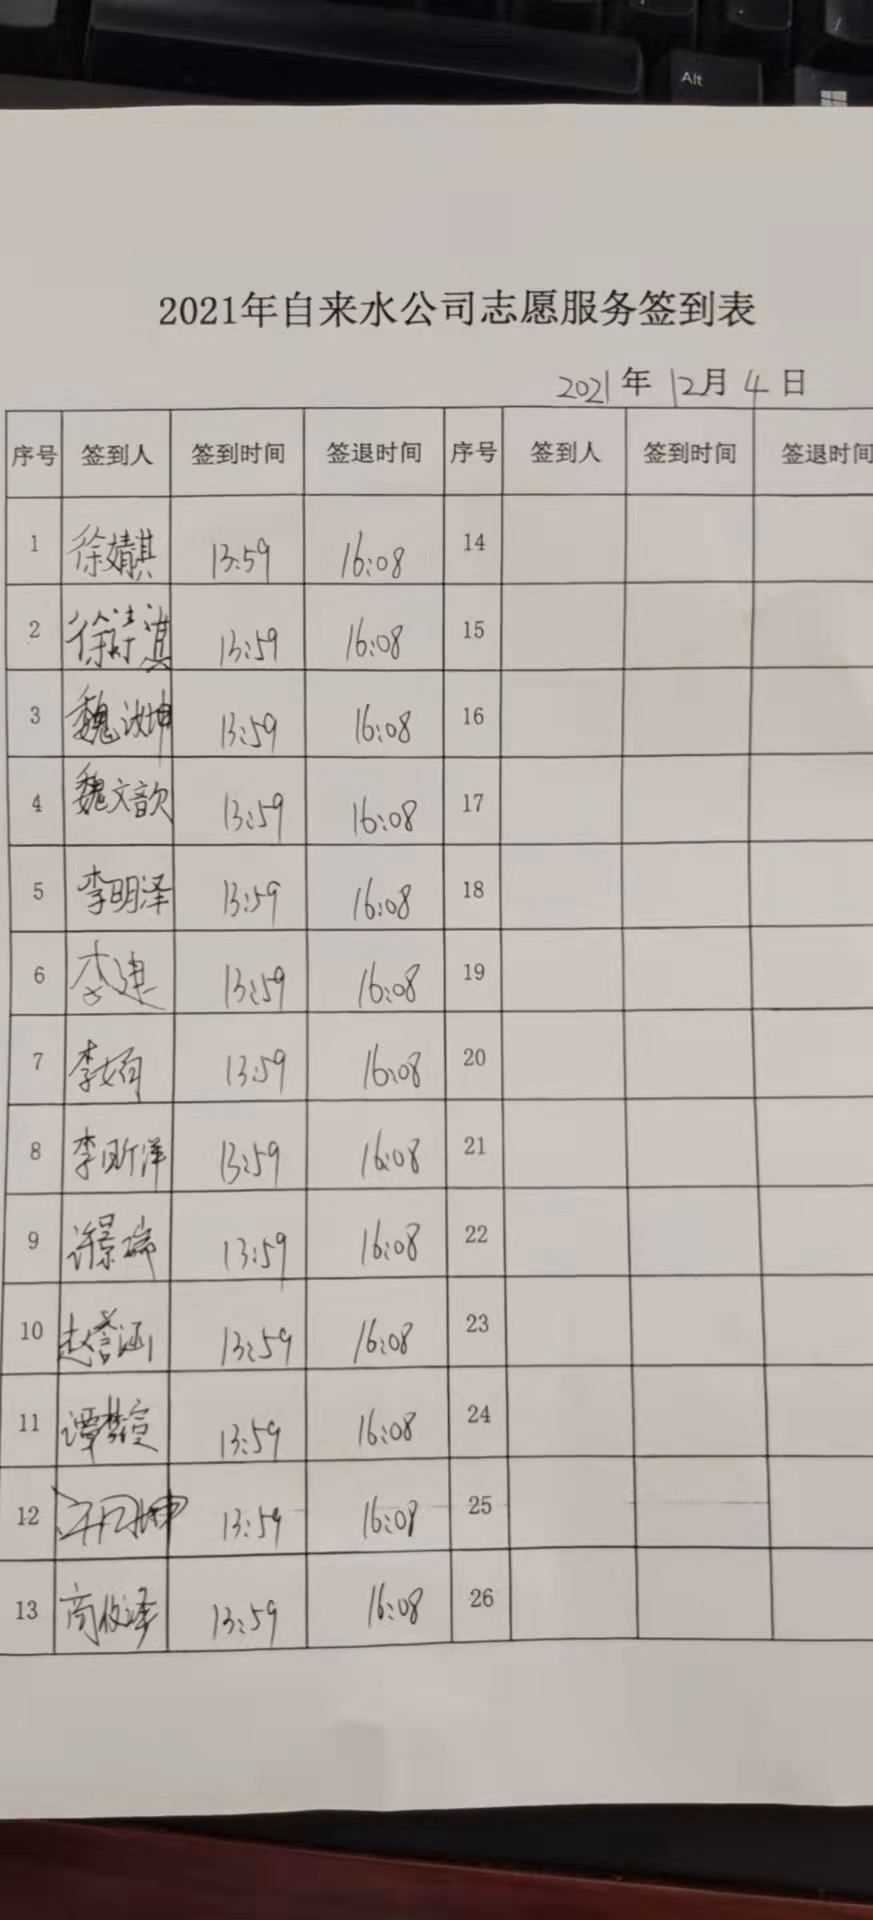 Alt
2021年自来水公司志愿服务签到表
2021年12月4日
序号 签到人 签到时间 签退时间 序号 签到人 签到时间 签退时间
1 徐婧淇 13:59 16:08 14
2 徐诗淇 13:59 16:08 15
3 魏汝坤 13:59 16:08 16
4 魏文歆 13:59 16:08 17
5 李明泽 13:59 16:08 18
6 李建 13:59 16:08 19
7 李 13:59 16:08 20
8 李昕洋 13:59 16:08 21
9 许景瑞 13:59 16:08 22
10 赵誉涵 13:59 16:08 23
11 谭梦萱 13:59 16:08 24
12 13:59 16:08 25
13 商 泽 13:59 16:08 26